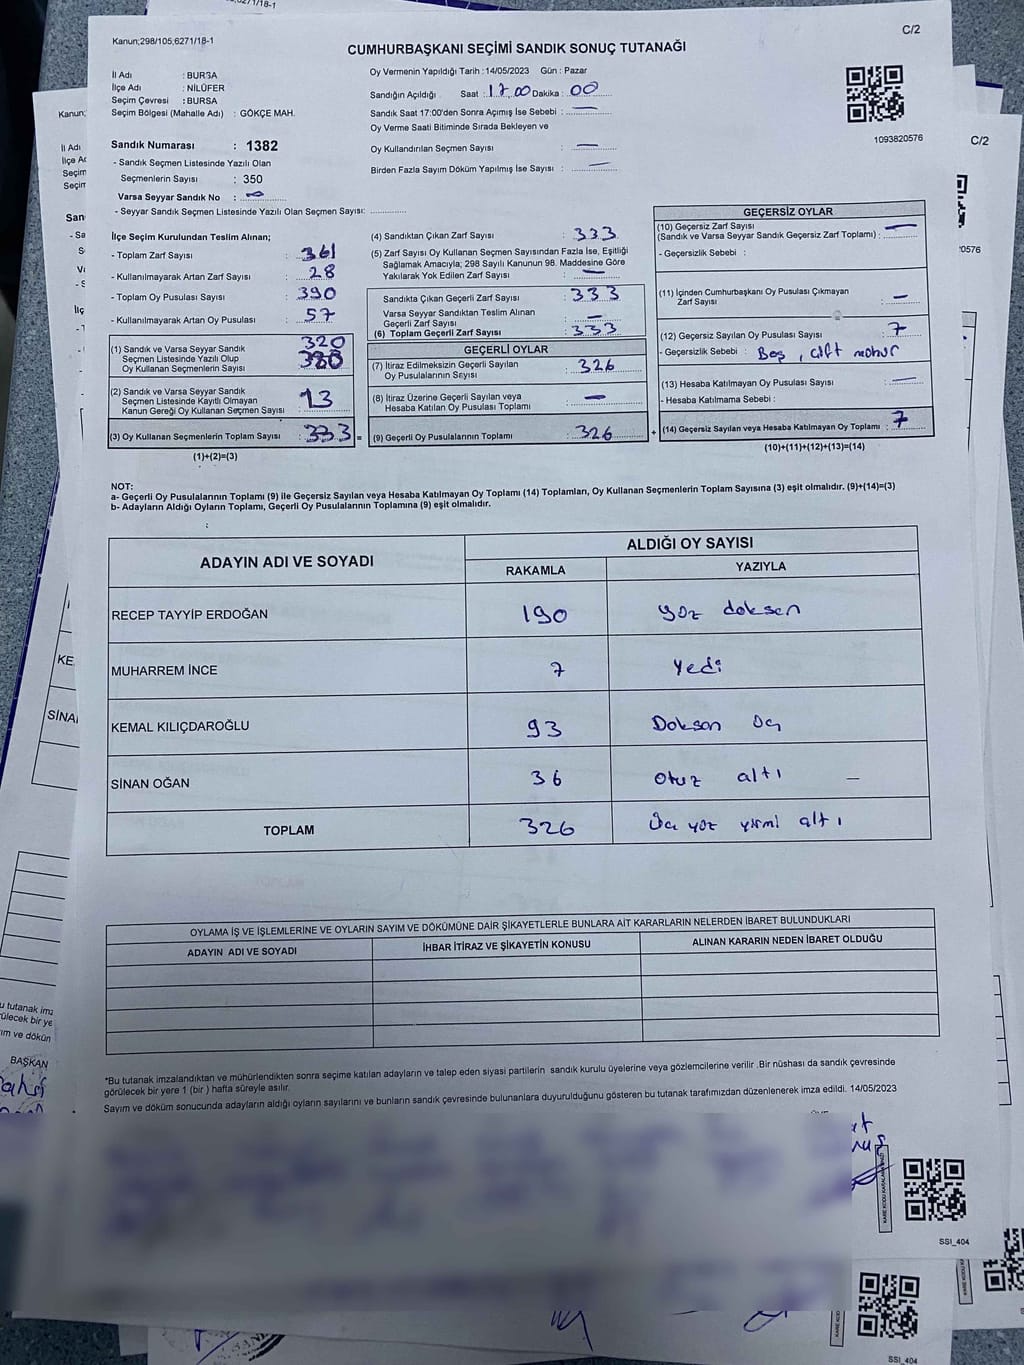 Kanun;298/105,6271/18-1
C/2
CUMHURBAŞKANI SEÇİMİ SANDIK SONUÇ TUTANAĞI
İl Adı : BURSA
İlçe Adı : NİLÜFER
Seçim Çevresi : BURSA
Seçim Bölgesi (Mahalle Adı) : GÖKÇE MAH.
Oy Vermenin Yapıldığı Tarih :14/05/2023 Gün : Pazar
Sandığın Açıldığı Saat : 17.00 Dakika : 00
Sandık Saat 17:00'den Sonra Açımış İse Sebebi : —
Oy Verme Saati Bitiminde Sırada Bekleyen ve
Oy Kullandırılan Seçmen Sayısı : —
Birden Fazla Sayım Döküm Yapılmış İse Sayısı : —
1093820576
Sandık Numarası : 1382
- Sandık Seçmen Listesinde Yazılı Olan
Seçmenlerin Sayısı : 350
Varsa Seyyar Sandık No :
- Seyyar Sandık Seçmen Listesinde Yazılı Olan Seçmen Sayısı: ..............
İlçe Seçim Kurulundan Teslim Alınan;
- Toplam Zarf Sayısı : 361
- Kullanılmayarak Artan Zarf Sayısı : 28
- Toplam Oy Pusulası Sayısı : 390
- Kullanılmayarak Artan Oy Pusulası : 57
320
(1) Sandık ve Varsa Seyyar Sandık
Seçmen Listesinde Yazılı Olup
Oy Kullanan Seçmenlerin Sayısı
(2) Sandık ve Varsa Seyyar Sandık
Seçmen Listesinde Kayıtlı Olmayan
Kanun Gereği Oy Kullanan Seçmen Sayısı : 13
(3) Oy Kullanan Seçmenlerin Toplam Sayısı : 333 =
(1)+(2)=(3)
(4) Sandıktan Çıkan Zarf Sayısı : 333
(5) Zarf Sayısı Oy Kullanan Seçmen Sayısından Fazla İse, Eşitliği
Sağlamak Amacıyla; 298 Sayılı Kanunun 98. Maddesine Göre
Yakılarak Yok Edilen Zarf Sayısı : —
Sandıkta Çıkan Geçerli Zarf Sayısı : 333
Varsa Seyyar Sandıktan Teslim Alınan
Geçerli Zarf Sayısı : —
(6) Toplam Geçerli Zarf Sayısı : 333
GEÇERLİ OYLAR
(7) İtiraz Edilmeksizin Geçerli Sayılan
Oy Pusulalarının Sayısı : 326
(8) İtiraz Üzerine Geçerli Sayılan veya
Hesaba Katılan Oy Pusulası Toplamı : —
(9) Geçerli Oy Pusulalarının Toplamı : 326 +
GEÇERSİZ OYLAR
(10) Geçersiz Zarf Sayısı
(Sandık ve Varsa Seyyar Sandık Geçersiz Zarf Toplamı) : —
- Geçersizlik Sebebi :
(11) İçinden Cumhurbaşkanı Oy Pusulası Çıkmayan
Zarf Sayısı : —
(12) Geçersiz Sayılan Oy Pusulası Sayısı : 7
- Geçersizlik Sebebi : Boş , çift mühür
(13) Hesaba Katılmayan Oy Pusulası Sayısı : —
- Hesaba Katılmama Sebebi :
(14) Geçersiz Sayılan veya Hesaba Katılmayan Oy Toplamı : 7
(10)+(11)+(12)+(13)=(14)
NOT:
a- Geçerli Oy Pusulalarının Toplamı (9) ile Geçersiz Sayılan veya Hesaba Katılmayan Oy Toplamı (14) Toplamları, Oy Kullanan Seçmenlerin Toplam Sayısına (3) eşit olmalıdır. (9)+(14)=(3)
b- Adayların Aldığı Oyların Toplamı, Geçerli Oy Pusulalarının Toplamına (9) eşit olmalıdır.
ADAYIN ADI VE SOYADI
ALDIĞI OY SAYISI
RAKAMLA YAZIYLA
RECEP TAYYİP ERDOĞAN 190 yüz doksan
MUHARREM İNCE 7 Yedi
KEMAL KILIÇDAROĞLU 93 Doksan üç
SİNAN OĞAN 36 otuz altı —
TOPLAM 326 Üç yüz yirmi altı
OYLAMA İŞ VE İŞLEMLERİNE VE OYLARIN SAYIM VE DÖKÜMÜNE DAİR ŞİKAYETLERLE BUNLARA AİT KARARLARIN NELERDEN İBARET BULUNDUKLARI
ADAYIN ADI VE SOYADI İHBAR İTİRAZ VE ŞİKAYETİN KONUSU ALINAN KARARIN NEDEN İBARET OLDUĞU
*Bu tutanak imzalandıktan ve mühürlendikten sonra seçime katılan adayların ve talep eden siyasi partilerin sandık kurulu üyelerine veya gözlemcilerine verilir .Bir nüshası da sandık çevresinde
görülecek bir yere 1 (bir ) hafta süreyle asılır.
Sayım ve döküm sonucunda adayların aldığı oyların sayılarını ve bunların sandık çevresinde bulunanlara duyurulduğunu gösteren bu tutanak tarafımızdan düzenlenerek imza edildi. 14/05/2023
SSI_404
C/2
Kanun;
İl Adı
Seçim
BAŞKAN
SSI_404